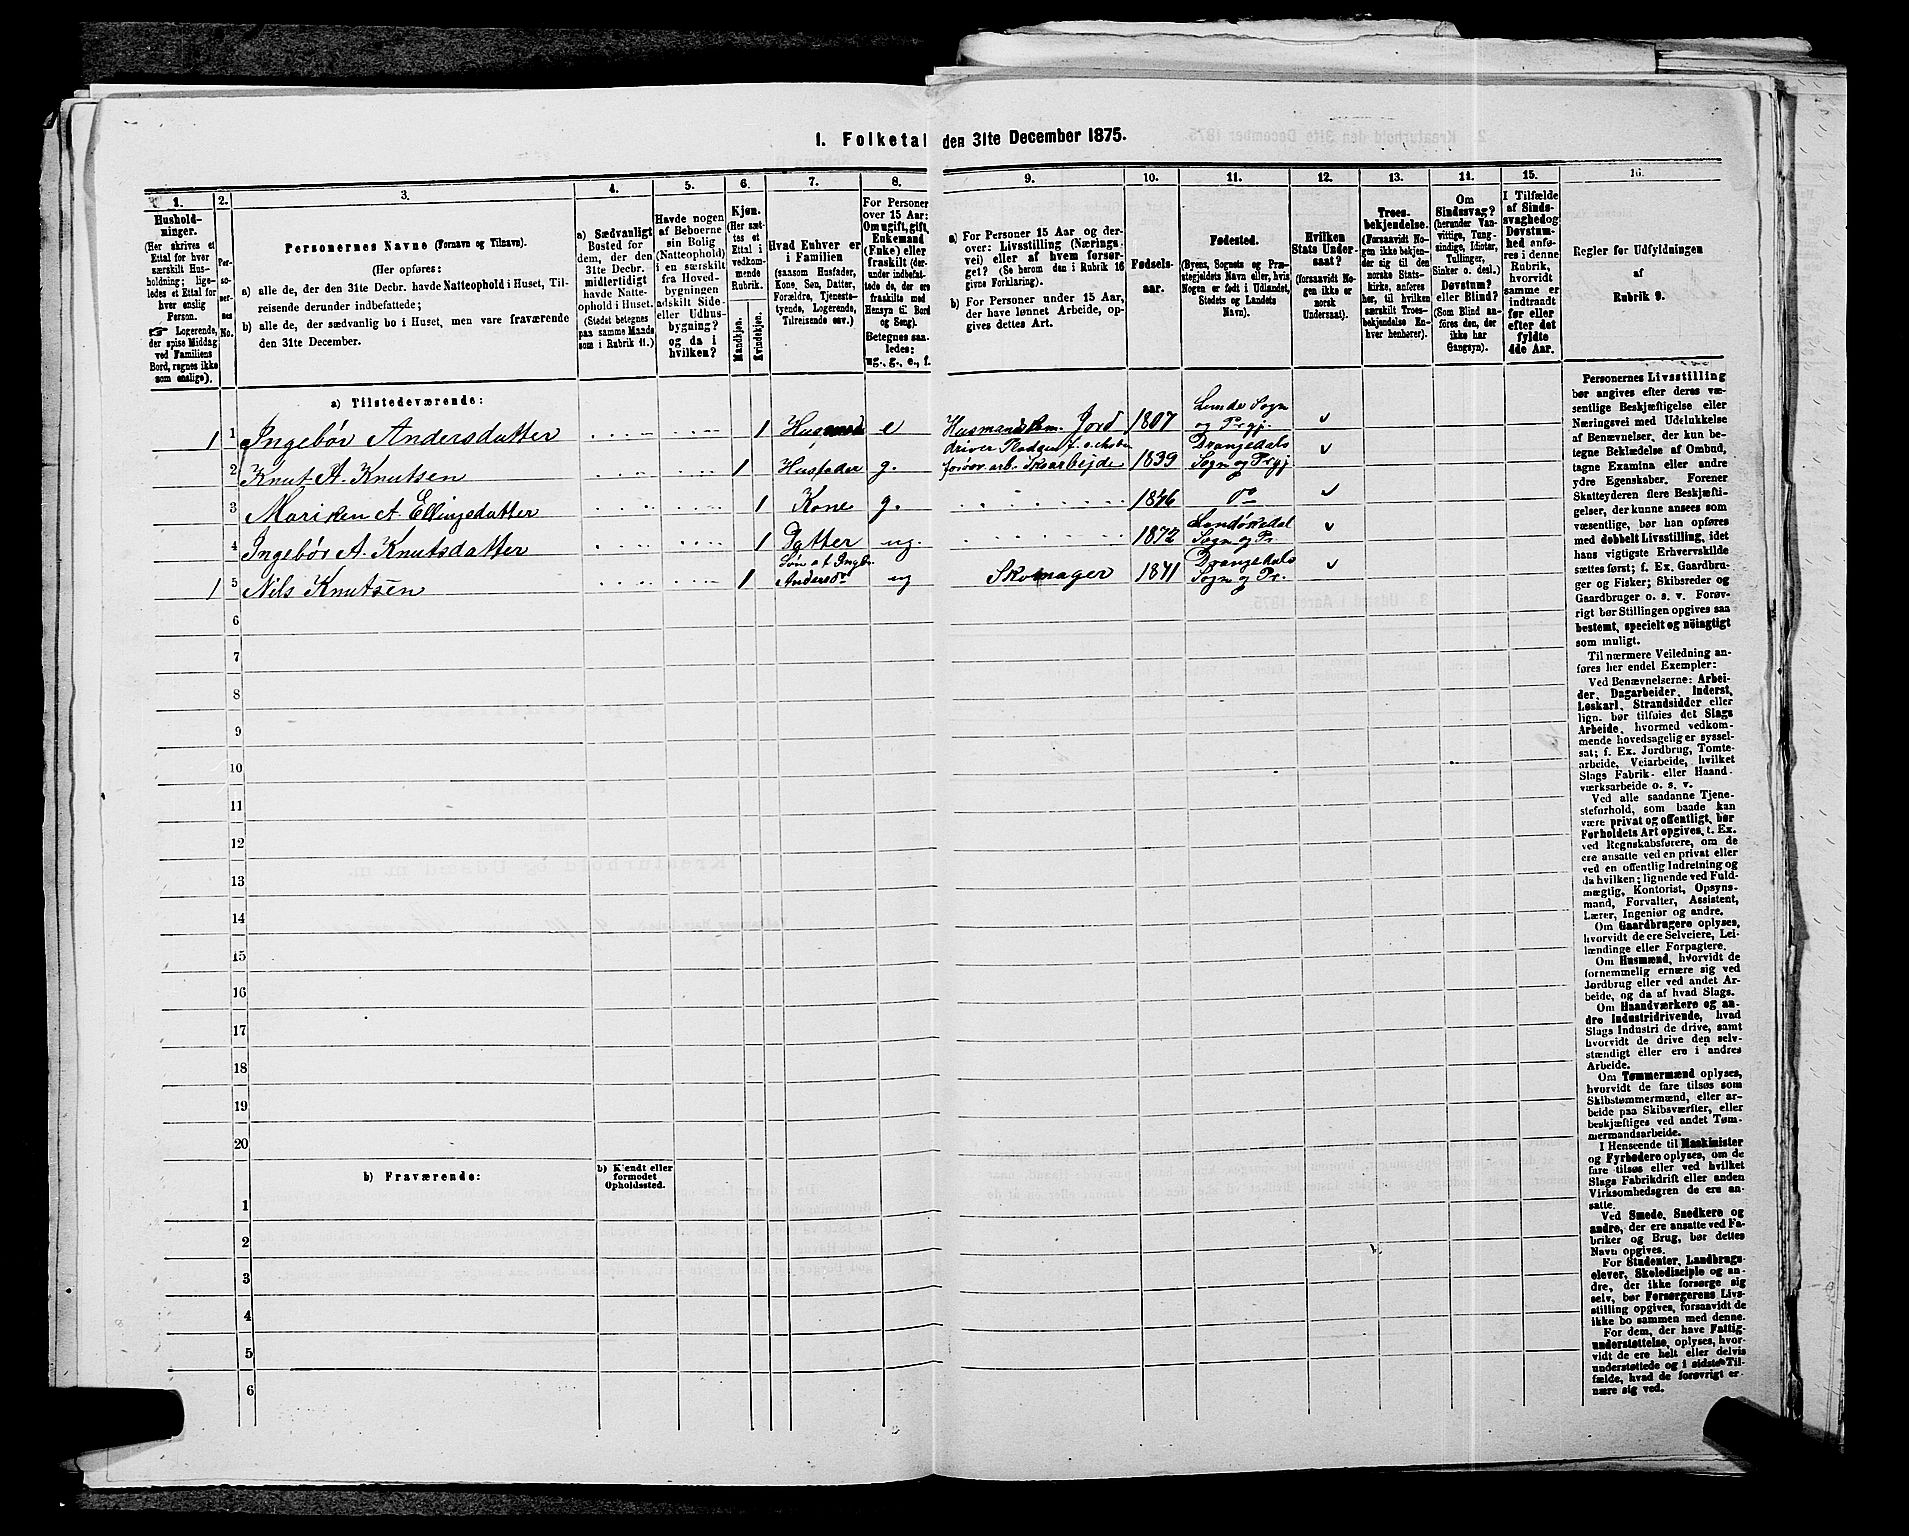 1. Folketal den 31te December 1875.
1.
2.
3.
4.
5.
6.
7.
8.
9.
10.
11.
12.
13.
14.
15.
16.
Hushold-
ninger.
(Her skrives et
Ettal for hver
særskilt Hus-
holdning; lige-
ledes et Ettal for
hver enslig
Person.
☞ Logerende,
der spise Middag
ved Familiens
Bord, regnes ikke
som enslige).
Per-
so-
ner-
nes
No.
Personernes Navne (Fornavn og Tilnavn).
(Her opføres:
a) alle de, der den 31te Decbr. havde Natteophold i Huset, Til-
reisende derunder indbefattede;
b) alle de, der sædvanlig bo i Huset, men vare fraværende
den 31te December.
a) Sædvanligt
Bosted for
dem, der den
31te Decbr.
midlertidigt
havde Natte-
ophold i Huset.
(Stedet betegnes
paa samme Maade
som i Rubrik 11.)
Havde nogen
af Beboerne
sin Bolig
(Natteophold)
i en særskilt
fra Hoved-
bygningen
adskilt Side-
eller Udhus-
bygning?
og da i
hvilken?
Kjøn.
(Her sæt-
tes et
Ettal i
vedkom-
mende
Rubrik.
Mandkjøn.
Kvindekjøn.
Hvad Enhver er
i Familien
(saasom Husfader,
Kone, Søn, Datter,
Forældre, Tjeneste-
tyende, Logerende,
Tilreisende osv.)
For Personer
over 15 Aar:
Om ugift, gift,
Enkemand
(Enke) eller
fraskilt (der-
under indbefat-
tede de, der ere
fraskilte med
Hensyn til Bord
og Seng).
Betegnes saa-
ledes:
ug., g., e., f.
a) For Personer 15 Aar og der-
over: Livsstilling (Nærings-
vei) eller af hvem forsør-
get? (Se herom den i Rubrik 16
givne Forklaring).
b) For Personer under 15 Aar,
der have lønnet Arbeide, op-
gives dettes Art.
Fødsels-
aar.
Fødested.
(Byens, Sognets og Præ-
stegjeldets Navn eller, hvis
Nogen er født i Udlandet,
Stedets og Landets
Navn).
Hvilken
Stats Under-
saat?
(forsaavidt No-
gen ikke er
norsk
Undersaat).
Troes-
bekjendelse.
(Forsaavidt No-
gen ikke bekjen-
der sig til den
norske Stats-
kirke, anføres
her, til hvilken
særskilt Troes-
bekjendelse En-
hver henhører).
Om
Sindssvag?
(herunder Van-
vittige, Tung-
sindige, Idioter,
Tullinger,
Sinker o. desl.)
Døvstum?
eller Blind?
(Som Blind an-
føres den, der
ikke har
Gangsyn).
I Tilfælde
af Sinds-
svaghed og
Døvstum-
hed anfø-
res i denne
Rubrik,
hvorvidt
samme er
indtraadt
før eller
efter det
fyldte
4de Aar.
Regler for Udfyldningen
af
Rubrik 9.
a) Tilstedeværende:
1 1 Ingebør Andersdatter 1 e Husmandskm. Jord 1807 Lunde Sogn og Prgj.
2 Knut A. Knutsen 1 Husfader g. driver Pladsen forøvr. arb. Skoarbejde 1839 Drangedals Sogn og Prgj
3 Mariken A. Ellingsdatter 1 Kone g. 1846 Do
4 Ingebør A. Knutsdatter 1 Datter ug. 1872 Sogn og Pr.
1 5 Nils Knutsen 1 Søn af Ingbr. Andersdr ug Skomager 1841 Drangedals Sogn og Pr.
6
7
8
9
10
11
12
13
14
15
16
17
18
19
20
b) Fraværende:
b) Kjendt eller
formodet
Opholdssted.
1
2
3
4
5
6
Personernes Livsstilling
bør angives efter deres væ-
sentlige Beskjæftigelse eller
Næringsvei med Udelukkelse
af Benævnelser, der kun be-
tegne Beklædelse af Ombud,
tagne Examina eller andre
ydre Egenskaber. Forener
Skatteyderen flere Beskjæfti-
gelser, der kunne ansees som
væsentlige, bør han opføres
med dobbelt Livsstilling, idet
hans vigtigste Erhvervskilde
sættes først; f. Ex. Gaardbru-
ger og Fisker; Skibsreder og
Gaardbruger o. s. v. Forøv-
rigt bør Stillingen opgives saa
bestemt, specielt og nøiagtigt
som muligt.
Til nærmere Veiledning an-
føres her endel Exempler:
Ved Benævnelserne: Arbei-
der, Dagarbeider, Inderst,
Løskarl, Strandsidder eller
lign. bør tilføies det Slags
Arbeide, hvormed vedkom-
mende hovedsagelig er syssel-
sat; f. Ex. Jordbrug, Tomte-
arbeide, Veiarbeide, hvilket
Slags Fabrik- eller Haand-
værksarbeide o. s. v.
Ved alle saadanne Tjene-
steforhold, som baade kan
være privat og offentligt, bør
Forholdets Art opgives, t. Ex.
ved Regnskabsførere, om de
ere ansatte ved en privat eller
ved en offentlig Indretning og
da hvilken; lignende ved Fuld-
mægtig, Kontorist, Opsyns-
mand, Forvalter, Assistent,
Lærer, Ingeniør og andre.
Om Gaardbrugere oplyses,
hvorvidt de ere Selveiere, Lei-
lændinge eller Forpagtere.
Om Husmænd, hvorvidt de
fornemmelig ernære sig ved
Jordbrug eller ved andet Ar-
beide, og da af hvad Slags.
Om Haandværkere og an-
dre Industridrivende, hvad
Slags Industri de drive, samt
hvorvidt de drive den selv-
stændigt eller ere i andres
Arbeide.
Om Tømmermænd oplyses,
hvorvidt de fare tilsøs som
Skibstømmermænd, eller ar-
beide paa Skibsværfter, eller
beskjæftiges ved andet Tøm-
mermandsarbeide.
I Henseende til Maskinister
og Fyrbødere oplyses, om de
fare tilsøs eller ved hvilket
Slags Fabrikdrift eller anden
Virksomhedsgren de ere an-
satte.
Ved Smede, Snedkere og
andre, der ere ansatte ved Fa-
briker og Brug, bør dettes
Navn opgives.
For Studenter, Landbrugs-
elever, Skoledisciple og an-
dre, der ikke forsørge sig
selv, bør Forsørgerens Livs-
stilling opgives, forsaavidt de
ikke bo sammen med denne.
For dem, der have Fattig-
understøttelse, oplyses, hvor-
vidt de ere helt eller delvis
understøttede og i sidste Til-
fælde, hvad de forøvrigt er-
nære sig ved.